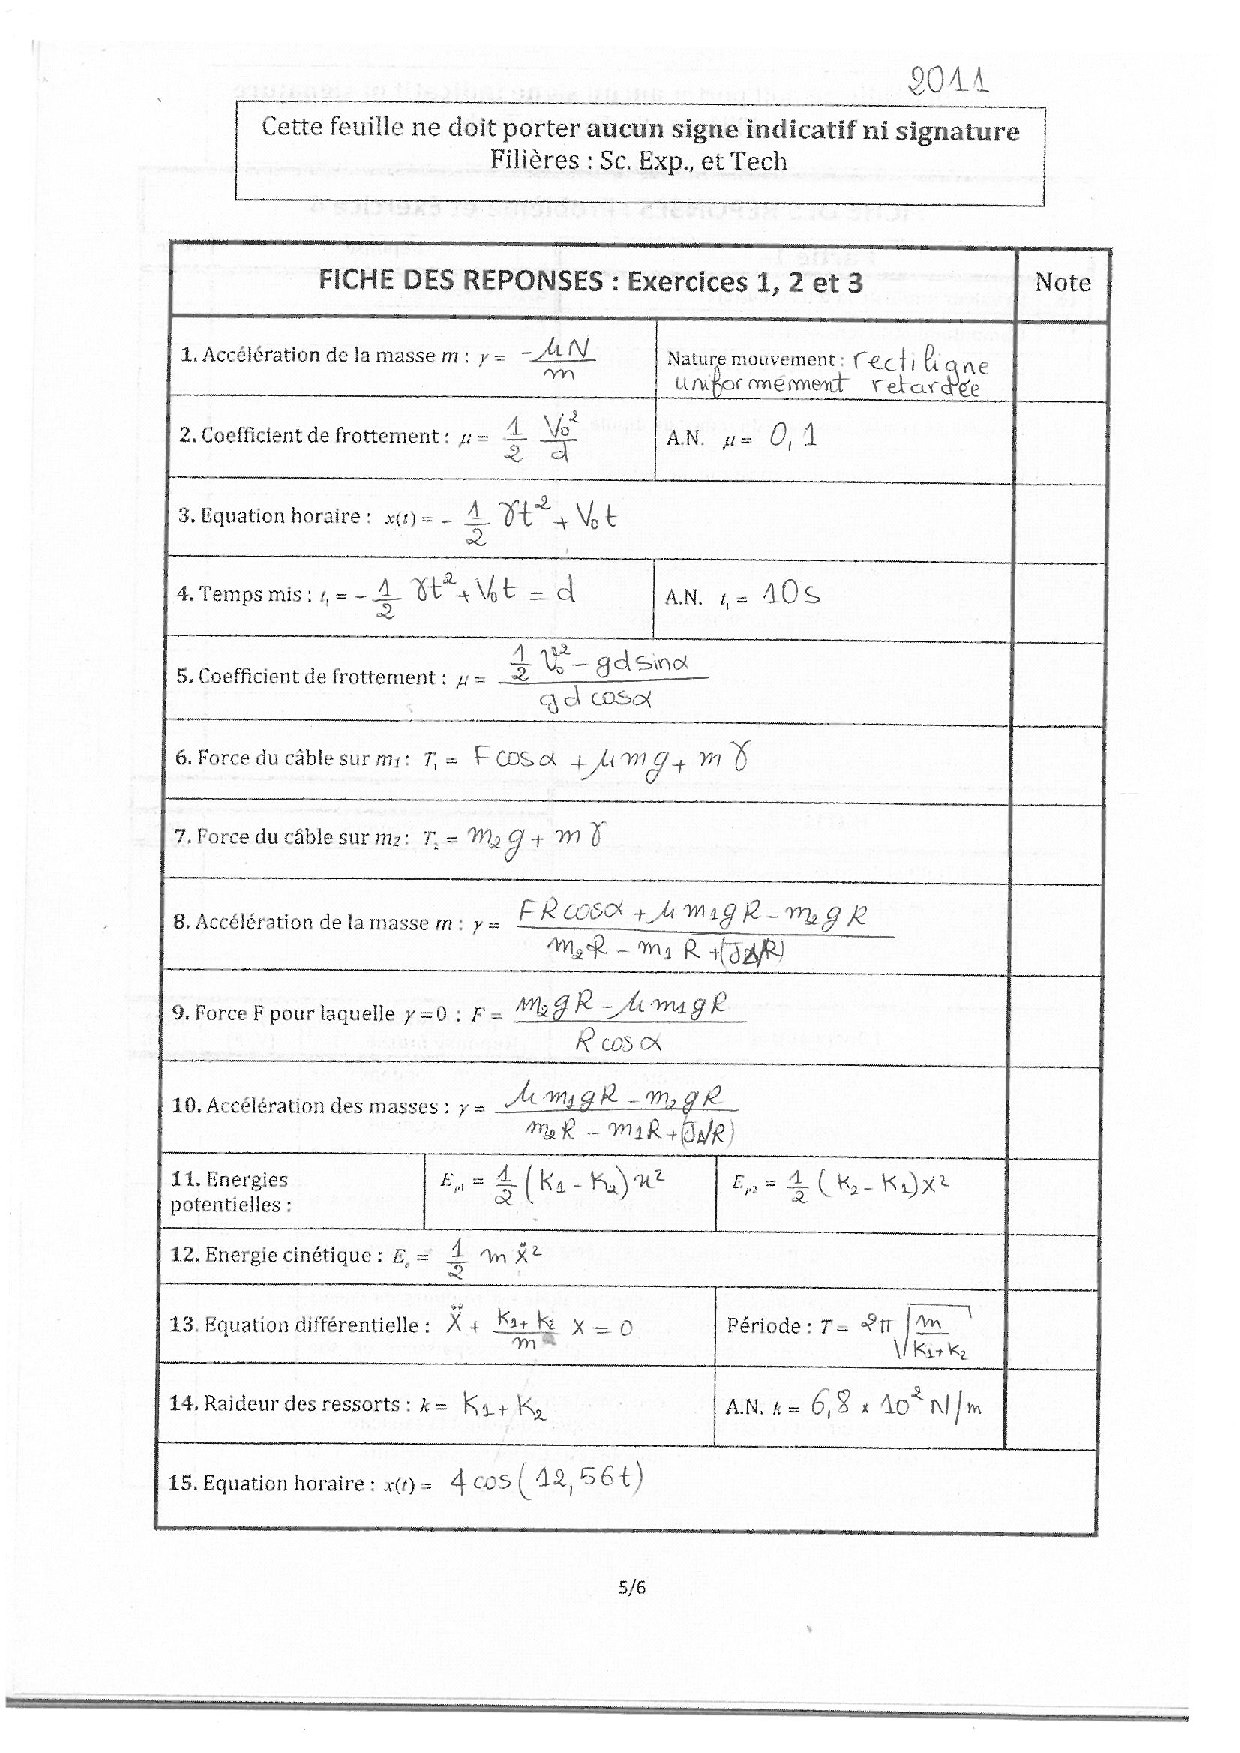 2011
Cette feuille ne doit porter aucun signe indicatif ni signature
Filières : Sc. Exp., et Tech
FICHE DES REPONSES : Exercices 1, 2 et 3 Note
1. Accélération de la masse m : γ = -μN/m Nature mouvement : rectiligne
uniformément retardée
2. Coefficient de frottement : μ = 1/2 V₀²/d A.N. μ = 0,1
3. Equation horaire : x(t) = - 1/2 γt² + V₀t
4. Temps mis : t₁ = - 1/2 γt² + V₀t = d A.N. t₁ = 10s
5. Coefficient de frottement : μ = (1/2 V₀² - gd sinα)/(gd cosα)
6. Force du câble sur m₁ : T₁ = F cosα + μmg + mγ
7. Force du câble sur m₂ : T₂ = m₂g + mγ
8. Accélération de la masse m : γ = (FR cosα + μm₁gR - m₂gR)/(m₂R - m₁R + (JΔ/R))
9. Force F pour laquelle γ = 0 : F = (m₂gR - μm₁gR)/(R cosα)
10. Accélération des masses : γ = (μm₁gR - m₂gR)/(m₂R - m₁R + (JΔ/R))
11. Energies
potentielles : Eₚ₁ = 1/2 (K₁ - K₂)x² Eₚ₂ = 1/2 (K₂ - K₁)x²
12. Energie cinétique : E꜀ = 1/2 mẍ²
13. Equation différentielle : Ẍ + (K₁+K₂)/m X = 0 Période : T = 2π√(m/(K₁+K₂))
14. Raideur des ressorts : k = K₁ + K₂ A.N. k = 6,8 × 10² N/m
15. Equation horaire : x(t) = 4 cos(12,56t)
5/6